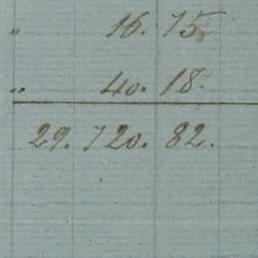 " 16. 75.
" 40. 18.
29. 720. 82.